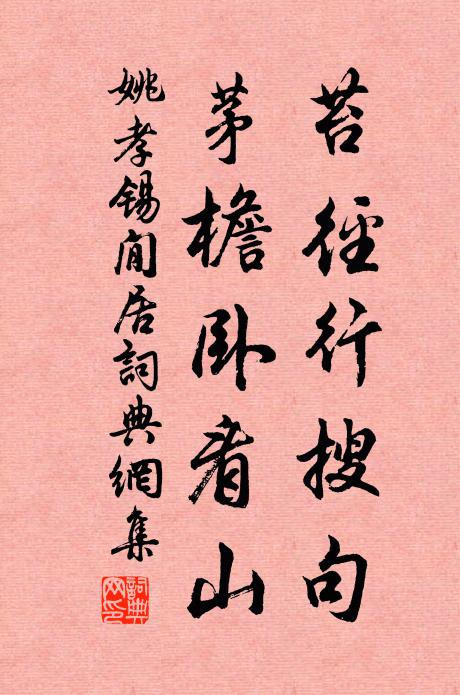 苔徑行搜句
茅檐卧看山
姚孝锡閒居詞典網集
詞典網印